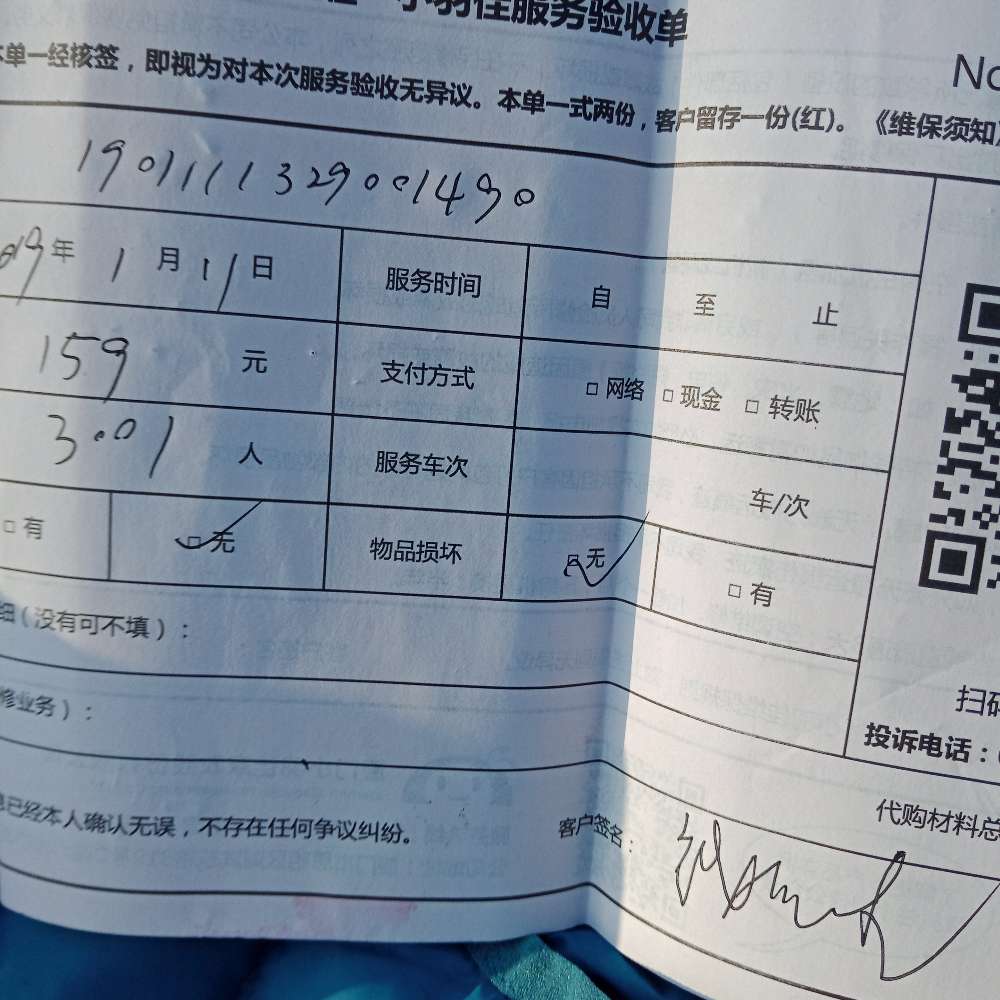 服务验收单
本单一经核签，即视为对本次服务验收无异议。本单一式两份，客户留存一份(红)。《维保须知》
No
1901111329001490
2019年 1月11日 服务时间 自 至 止
159 元 支付方式 □网络 □现金 □转账
3.01 人 服务车次 车/次
□有 □无 物品损坏 □无 □有
细（没有可不填）：
修业务）：
扫码
投诉电话：
已经本人确认无误，不存在任何争议纠纷。
客户签名：
代购材料总